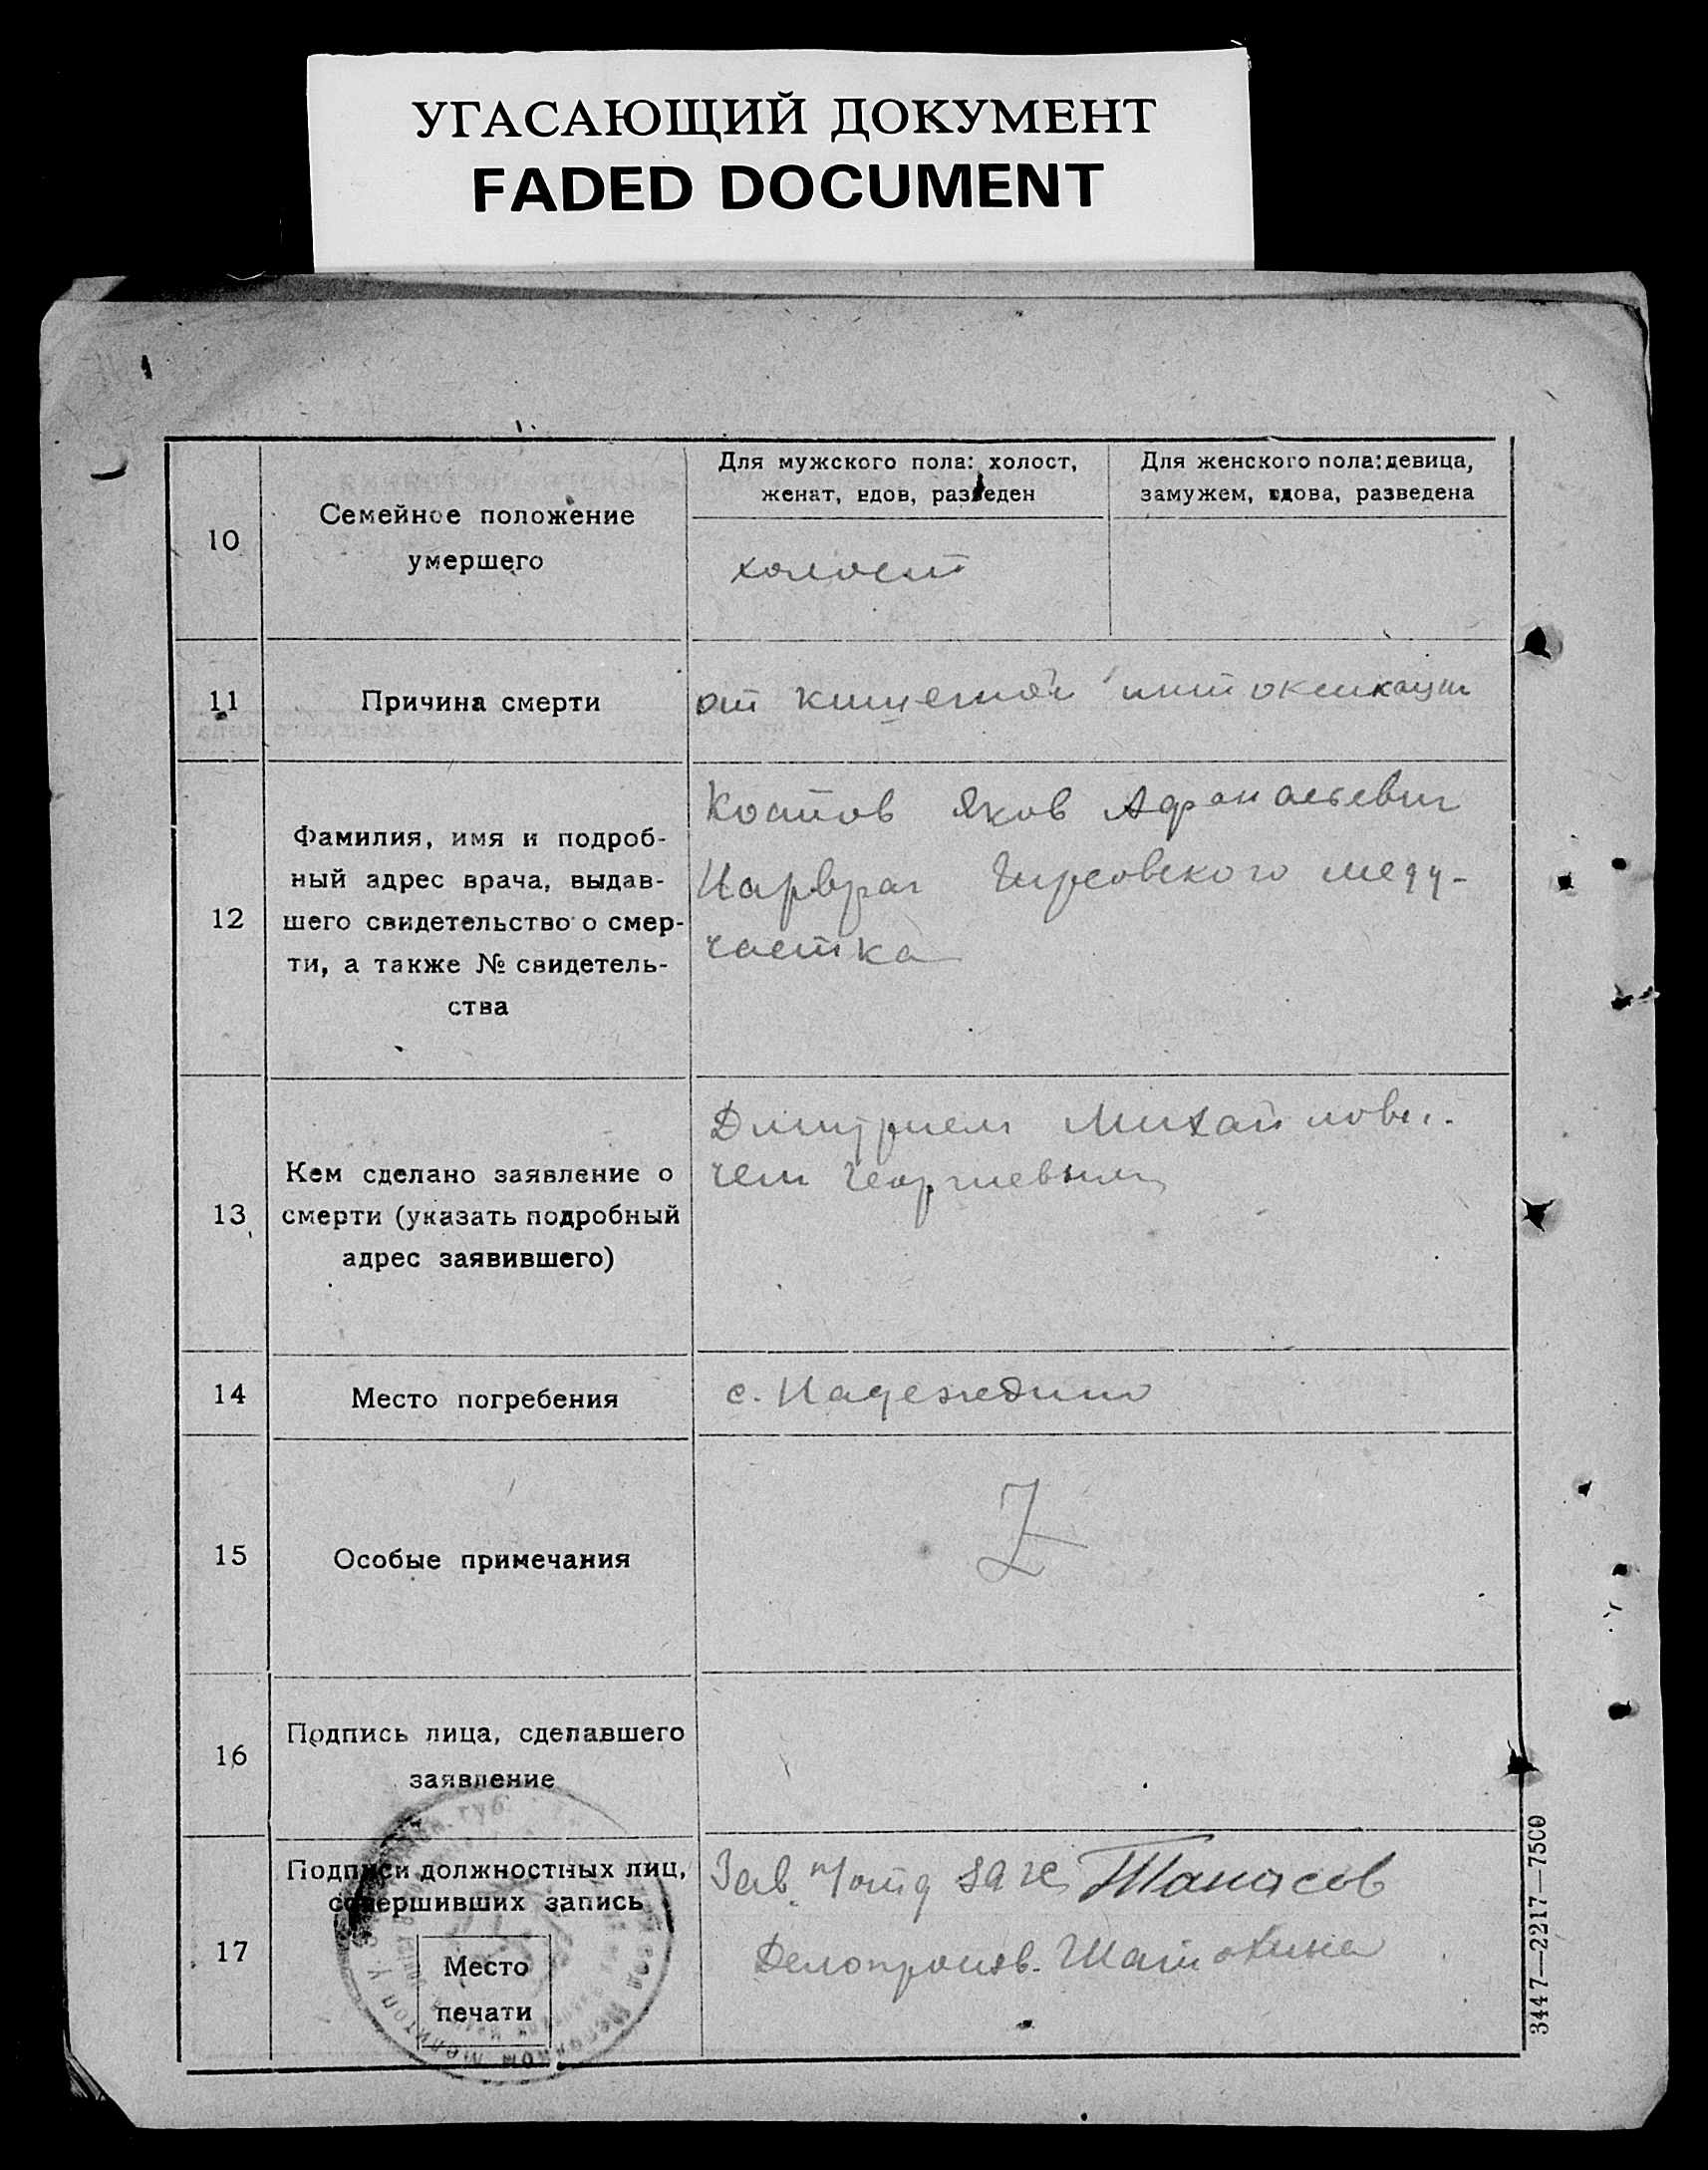 УГАСАЮЩИЙ ДОКУМЕНТ
FADED DOCUMENT
10
Семейное положение
умершего
Для мужского пола: холост,
женат, вдов, разведен
Для женского пола: девица,
замужем, вдова, разведена
холост
11
Причина смерти
от кишечной интоксикации
12
Фамилия, имя и подроб-
ный адрес врача, выдав-
шего свидетельство о смер-
ти, а также № свидетель-
ства
Костов Яков Афанасьевич
Гирсовского меду-
частка
13
Кем сделано заявление о
смерти (указать подробный
адрес заявившего)
Дмитрием Михайлови-
чем Георгиевым
14
Место погребения
с. Надеждино
15
Особые примечания
Z
16
Подпись лица, сделавшего
заявление
17
Подписи должностных лиц,
совершивших запись
Место
печати
Зав. загс Танасов
Делопроизв. Шатохина
3447—2217—7500